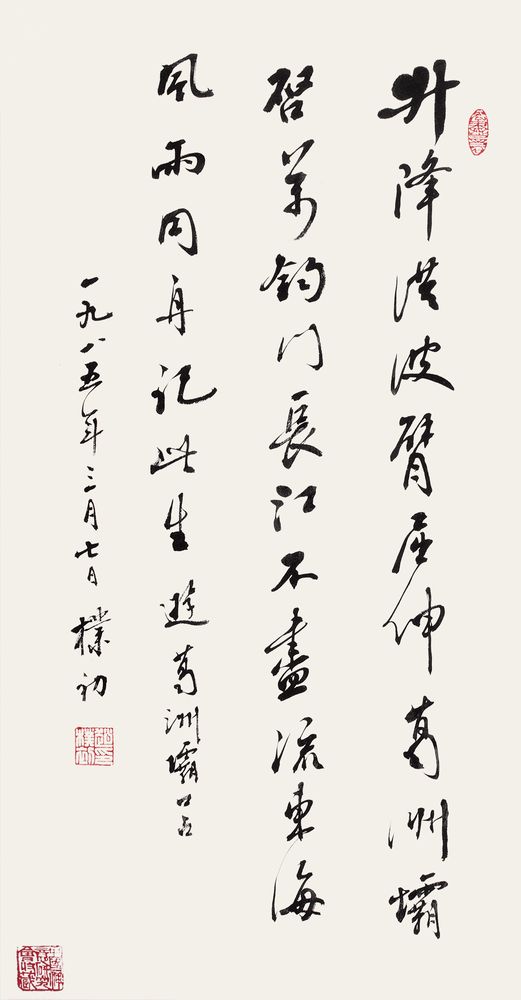 升降洪波臂屈伸葛洲壩
啓萬鈞门長江不盡流東海
風雨同舟记此生 遊葛洲壩口占
一九八五年三月七日 樸初